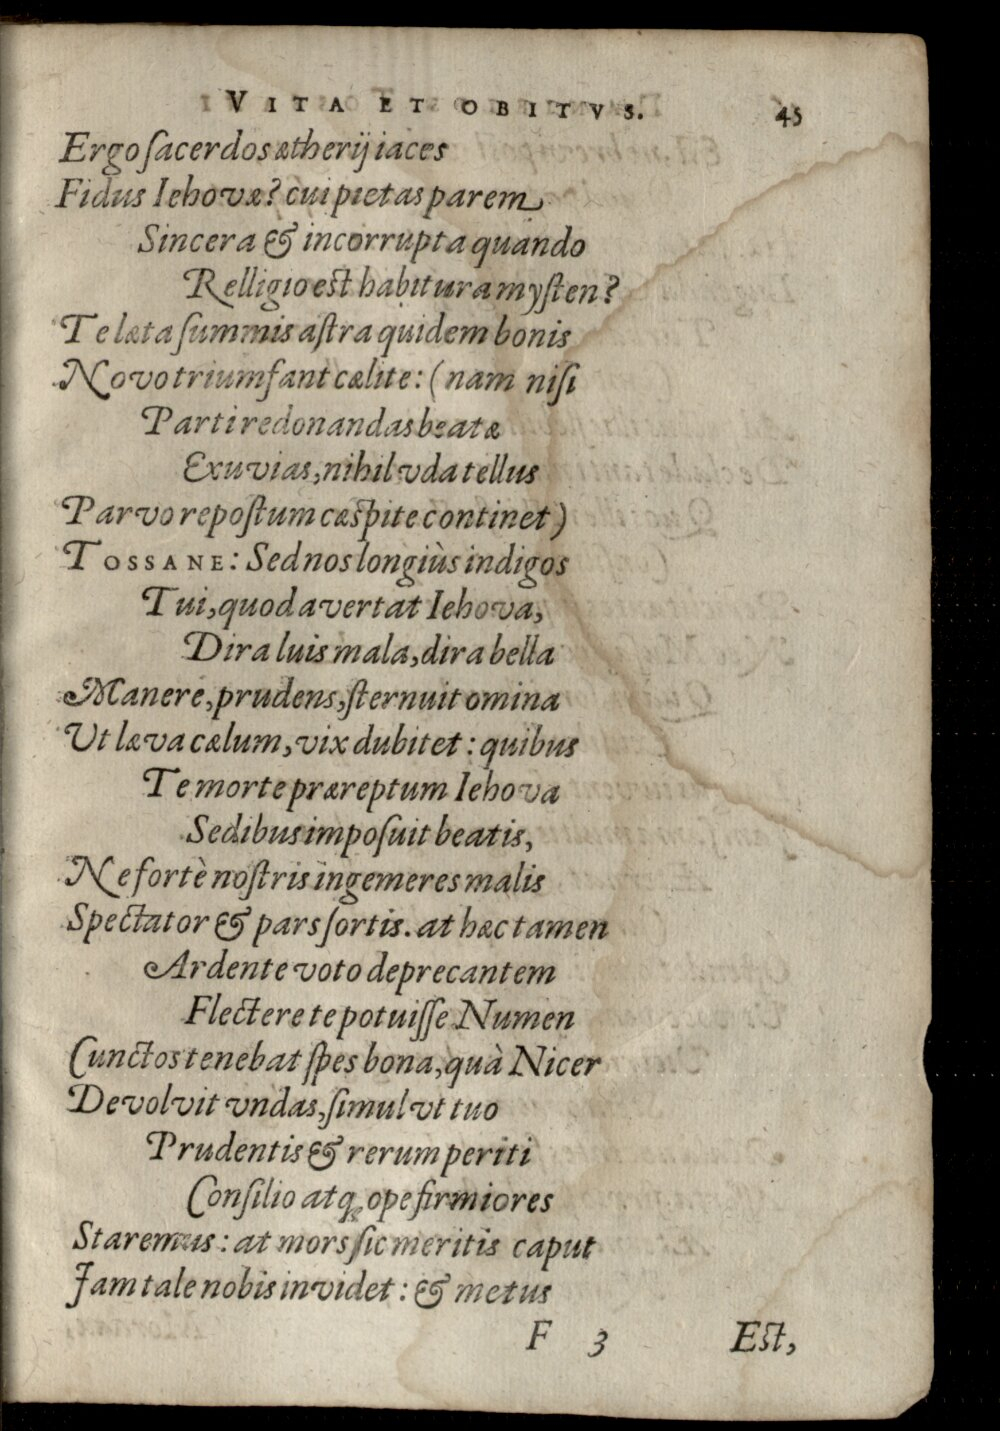 VITA ET OBITVS. 45
Ergo ſacerdos ætherij iaces
Fidus Iehovæ? cui pietas parem
Sincera & incorrupta quando
Relligio est habitura myſten?
Te læta ſummis aſtra quidem bonis
Novo triumfant cælite: (nam niſi
Parti redonandas beatæ
Exuvias, nihil vda tellus
Parvo repoſtum cæſpite continet)
TOSSANE: Sed nos longiùs indigos
Tui, quod avertat Iehova,
Dira luis mala, dira bella
Manere, prudens, ſternuit omina
Ut læva cælum, vix dubitet: quibus
Te morte præreptum Iehova
Sedibus impoſuit beatis,
Ne fortè noſtris ingemeres malis
Spectator & pars ſortis. at hæc tamen
Ardente voto deprecantem
Flectere te potuiſſe Numen
Cunctos tenebat ſpes bona, quà Nicer
Devolvit vndas, ſimul vt tuo
Prudentis & rerum periti
Conſilio atq; ope firmiores
Staremus: at mors ſic meritis caput
Jam tale nobis invidet: & metus
F 3 Est,